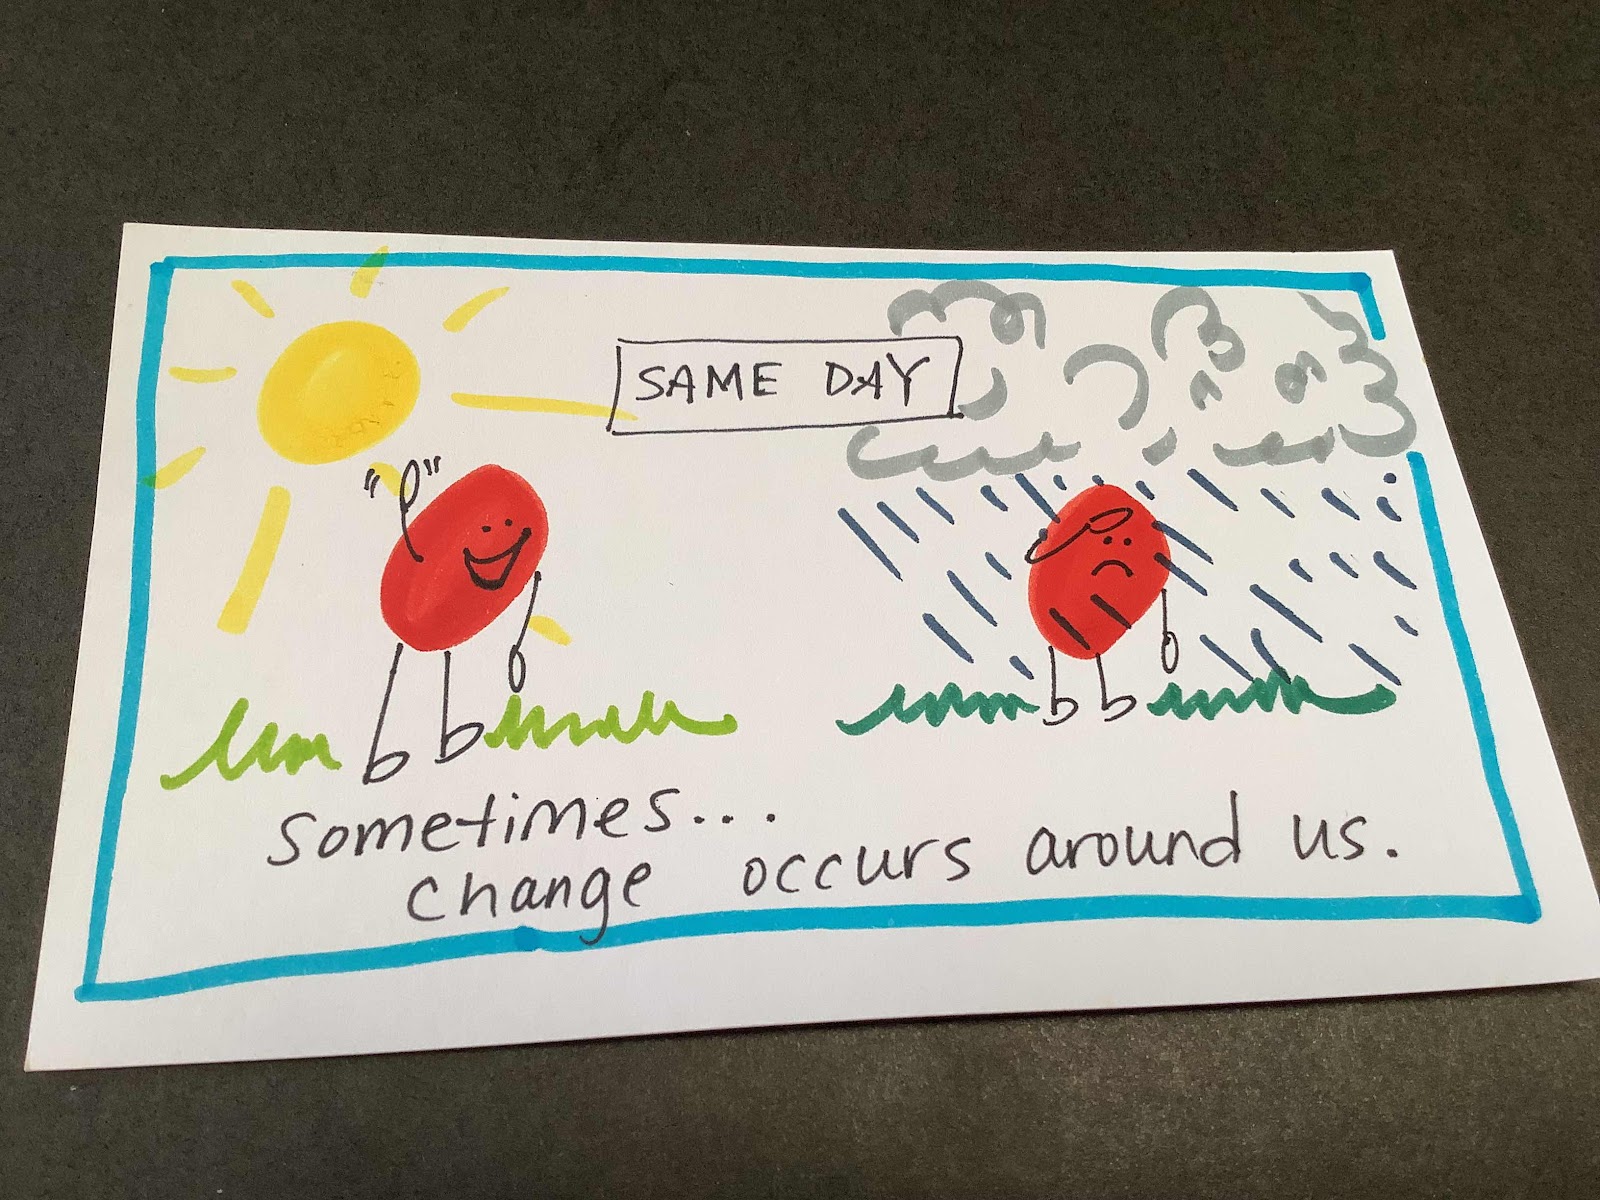 SAME DAY
sometimes...
change occurs around us.